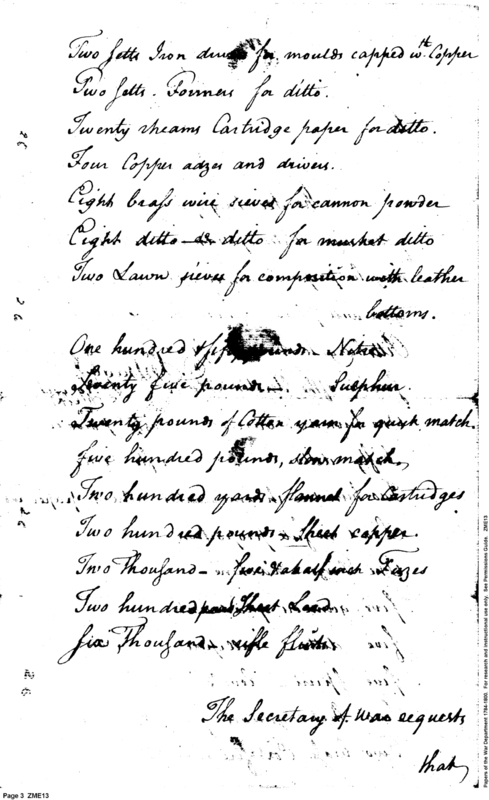 Two Setts Iron drivers for moulds capped wth. Copper
Two Setts. Formers for ditto.
Twenty rheams Cartridge paper for ditto.
Four Copper adzes and drivers.
Eight brass wire sieves for cannon powder
Eight ditto ditto for musket ditto
Two Lawn sieves for composition with leather
bottoms.
One hundred & fifty pounds - Nitre
Seventy five pounds - Sulphur.
Twenty pounds of Cotton yarn for quick match.
five hundred pounds, slow match,
Two hundred yards flannel for Cartridges
Two hundred pounds Sheet copper.
Two Thousand - five & a half inch Fuzes
Two hundred Sheet Lead
Six Thousand - rifle flints
The Secretary of War requests
that
Page 3 ZME13
Papers of the War Department 1784-1800. For research and instructional use only. See Permissions Guide. ZME13